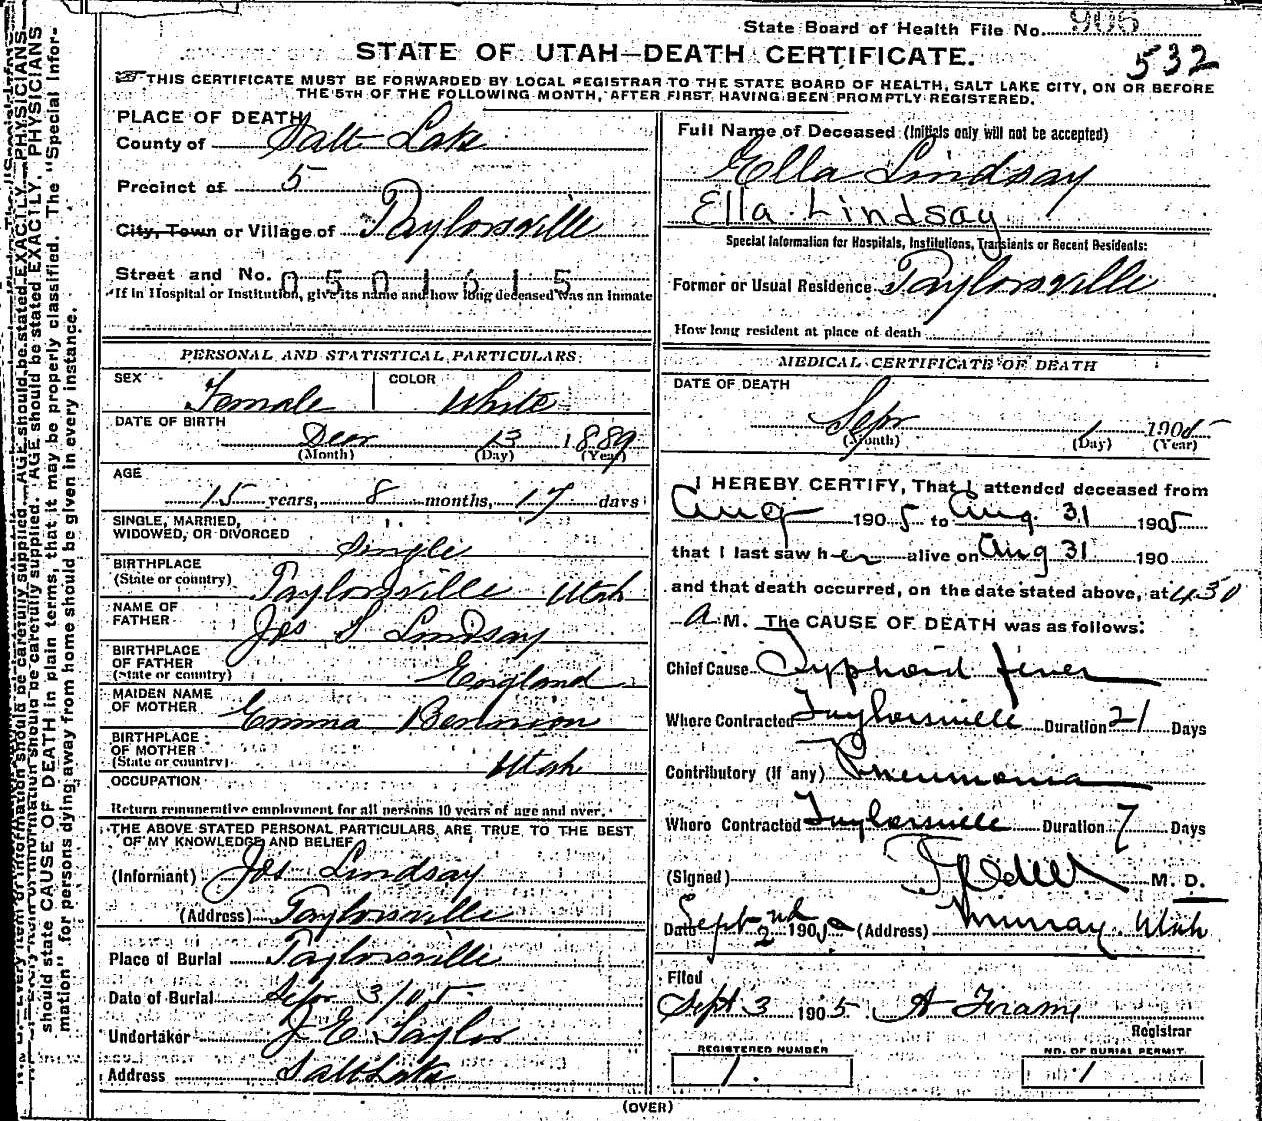 State Board of Health File No. 905
532
STATE OF UTAH—DEATH CERTIFICATE.
THIS CERTIFICATE MUST BE FORWARDED BY LOCAL REGISTRAR TO THE STATE BOARD OF HEALTH, SALT LAKE CITY, ON OR BEFORE
THE 5TH OF THE FOLLOWING MONTH, AFTER FIRST HAVING BEEN PROMPTLY REGISTERED.
PLACE OF DEATH
County of Salt Lake
Precinct of 5
City, Town or Village of Taylorsville
Street and No. 0501615
If in Hospital or Institution, give its name and how long deceased was an inmate
PERSONAL AND STATISTICAL PARTICULARS:
SEX Female COLOR White
DATE OF BIRTH
13 1889
(Month) (Day) (Year)
AGE
15 years, 8 months, 17 days
SINGLE, MARRIED,
WIDOWED, OR DIVORCED Single
BIRTHPLACE
(State or country) Taylorsville Utah
NAME OF
FATHER Jos S Lindsay
BIRTHPLACE
OF FATHER
(State or country) England
MAIDEN NAME
OF MOTHER Emma Bennion
BIRTHPLACE
OF MOTHER
(State or country) Utah
OCCUPATION
Return remunerative employment for all persons 10 years of age and over.
THE ABOVE STATED PERSONAL PARTICULARS ARE TRUE TO THE BEST
OF MY KNOWLEDGE AND BELIEF
(Informant) Jos Lindsay
(Address) Taylorsville
Place of Burial Taylorsville
Date of Burial Sepr 3/05
Undertaker J E Taylor
Address Salt Lake
Full Name of Deceased (Initials only will not be accepted)
Ella Lindsay
Ella Lindsay
Special Information for Hospitals, Institutions, Transients or Recent Residents:
Former or Usual Residence Taylorsville
How long resident at place of death
MEDICAL CERTIFICATE OF DEATH
DATE OF DEATH
Sepr 1 1905
(Month) (Day) (Year)
I HEREBY CERTIFY, That I attended deceased from
Aug 1905 to Aug. 31 1905
that I last saw her alive on Aug 31 190
and that death occurred, on the date stated above, at 4.30
A M. The CAUSE OF DEATH was as follows:
Chief Cause Typhoid fever
Where Contracted Taylorsville Duration 21 Days
Contributory (If any) Pneumonia
Where Contracted Taylorsville Duration 7 Days
(Signed) M. D.
Date Sept 2nd 190 (Address) Murray Utah
Filed
Sept 3 1905
Registrar
REGISTERED NUMBER
1.
NO. OF BURIAL PERMIT
1
(OVER)
should state CAUSE OF DEATH in plain terms, that it may be properly classified. The "Special Infor-
mation" for persons dying away from home should be given in every instance.